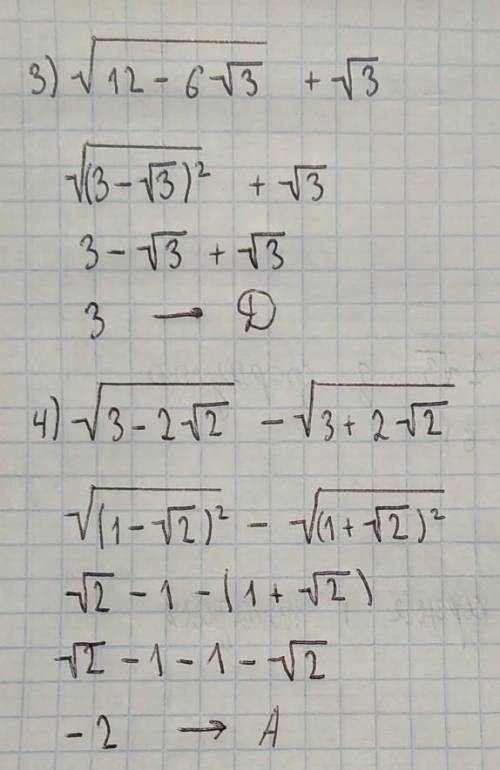 3) √(12 - 6√3) + √3
√((3 - √3)²) + √3
3 - √3 + √3
3 → D
4) √(3 - 2√2) - √(3 + 2√2)
√((1 - √2)²) - √((1 + √2)²)
√2 - 1 - (1 + √2)
√2 - 1 - 1 - √2
-2 → A